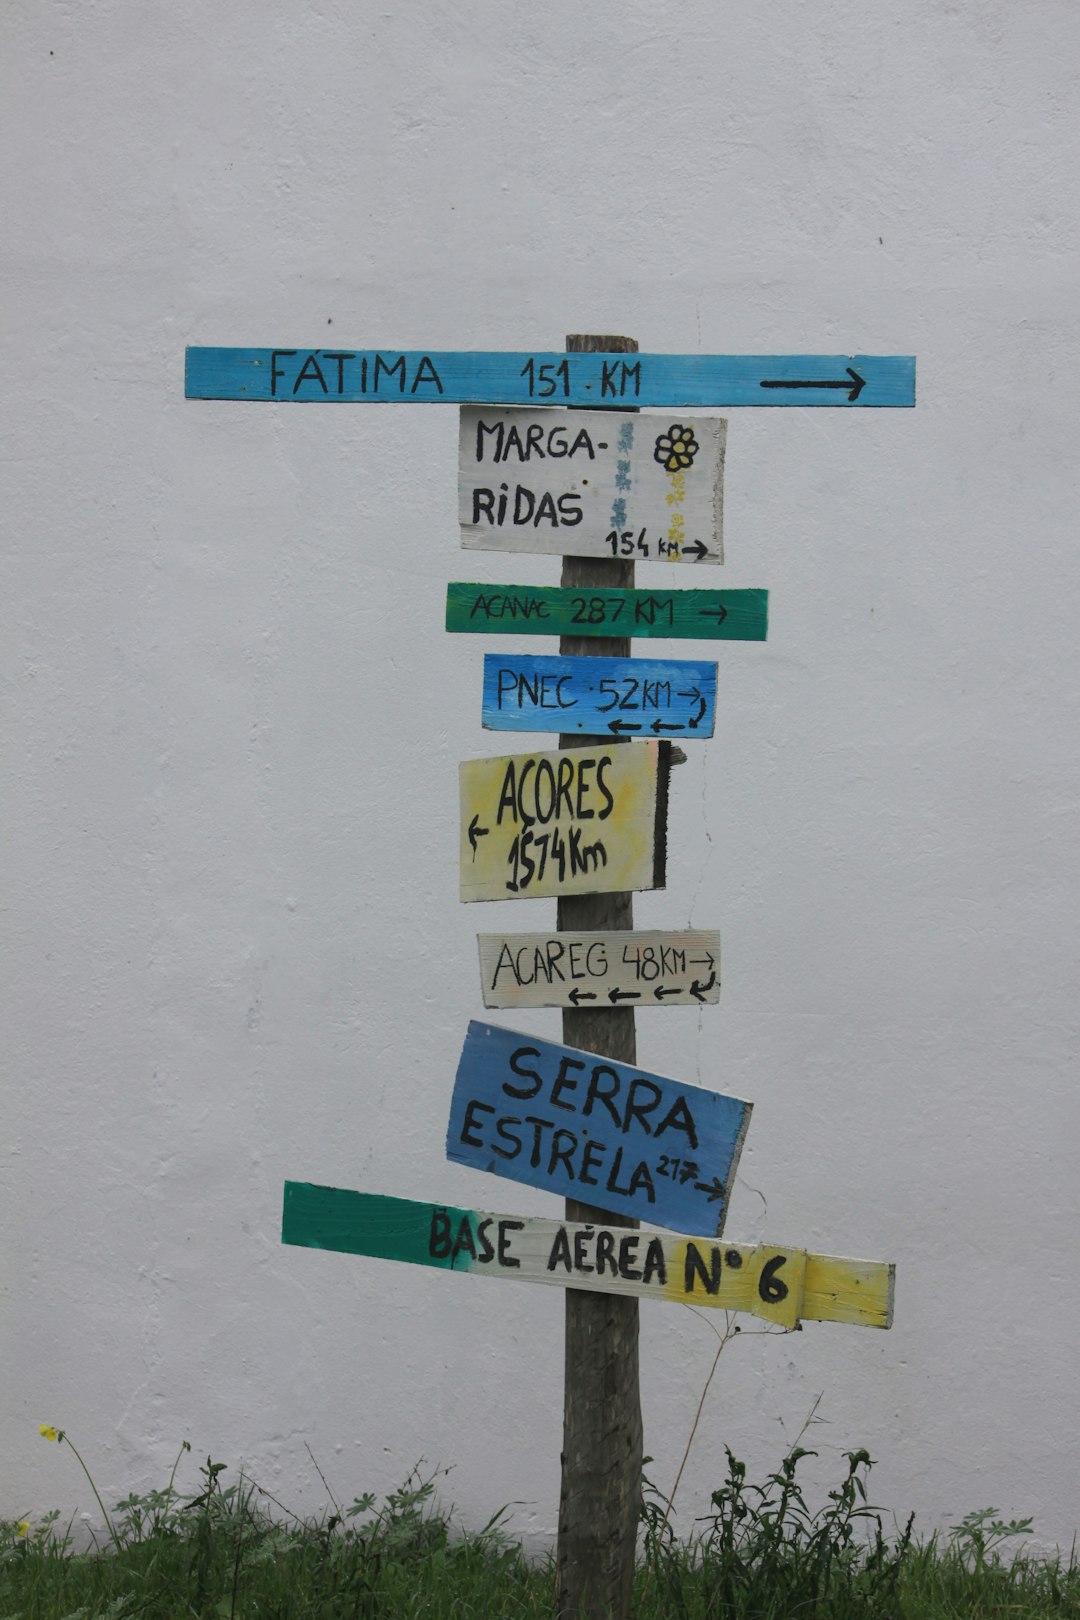 FÁTIMA 151 KM →
MARGA-
RiDAS
154 KM →
ACANAC 287 KM →
PNEC 52KM →
AÇORES
← 1574Km
ACAREG 48KM →
SERRA
ESTRELA 217 →
BASE AÉREA Nº 6